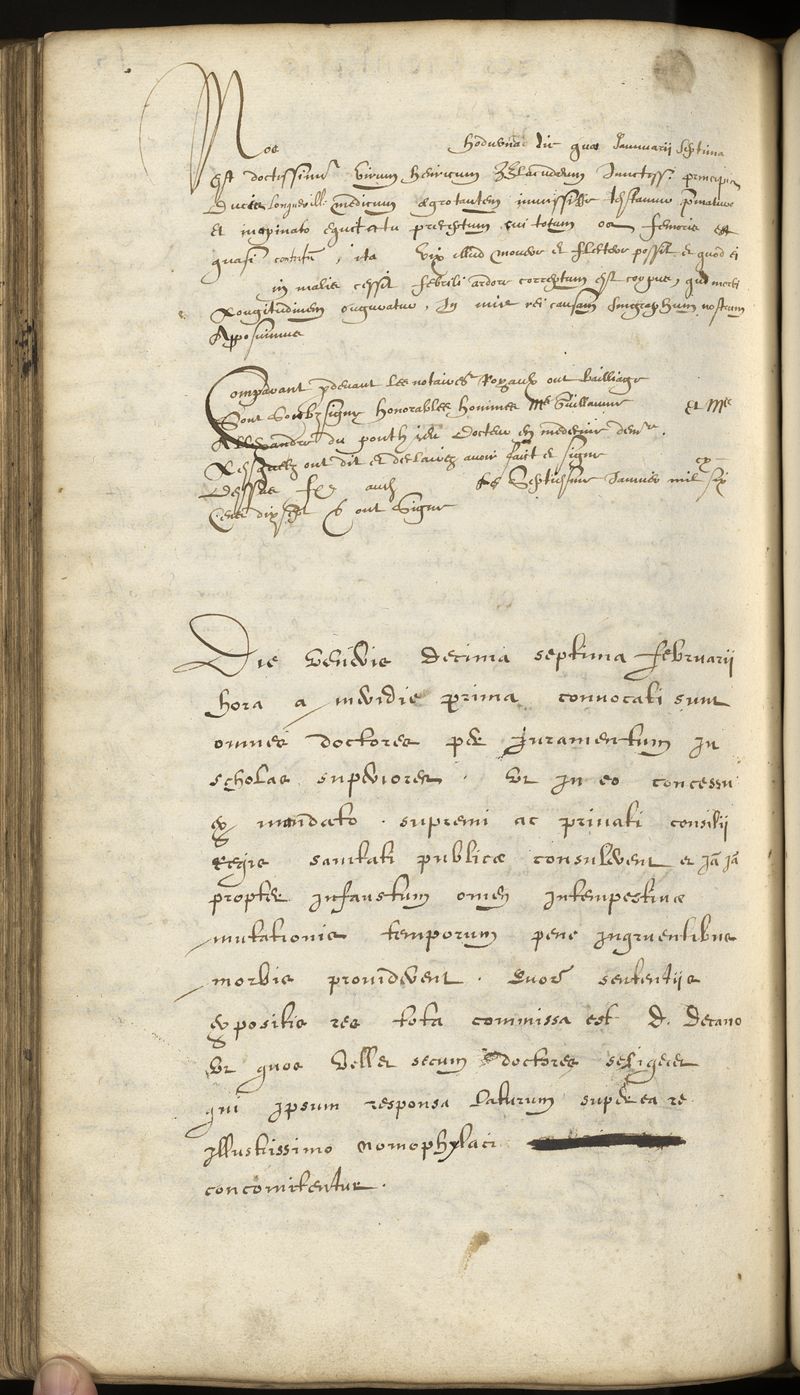 Nos hodierna die quae Januarii septima
est doctissimum virum Henricum Blacuodeum Invictiss. principis
Ducis Longueuill. medicum aegrotantem invisisse testamur
et inopinato equitatu cui totum os femoris est
quasi , ita vix illud movere et flectere possit et quod ei
in malis cessit febrili ardore correptum est corpus, quod morbi
longitudinem auguratur, In cuius rei causam singraphum nostrum
Apposuimus
Comparant pdevant les notaires Royaulx ont Bailliage
Sont Soubzsigne honorables hommes Me Guillaume et Me
Allexandre du docteur en medecine
Lesquelz ont dit et declairez avoir faict et signe
Dessus le Septiesme Janvier mil six
Cens dix sept & ont Signe
Die veneris decima septima februarii
hora a meridie prima convocati sunt
omnes doctores per Juramentum in
scholas superiores . vt in eo concessu
ex mandato . supremi ac privati consilij
regis sanitati publicæ consulerent et jã jã
propter infaustum omen intempestivæ
mutationis temporum pene ingruentibus
morbis providerent . quorũ sententijs
expositis res tota commissa est D. Decano
vt quos vellet secum doctores seligeret
qui ipsum responsa laturum super ea re
illustrissimo nomophylaci
concomitentur .